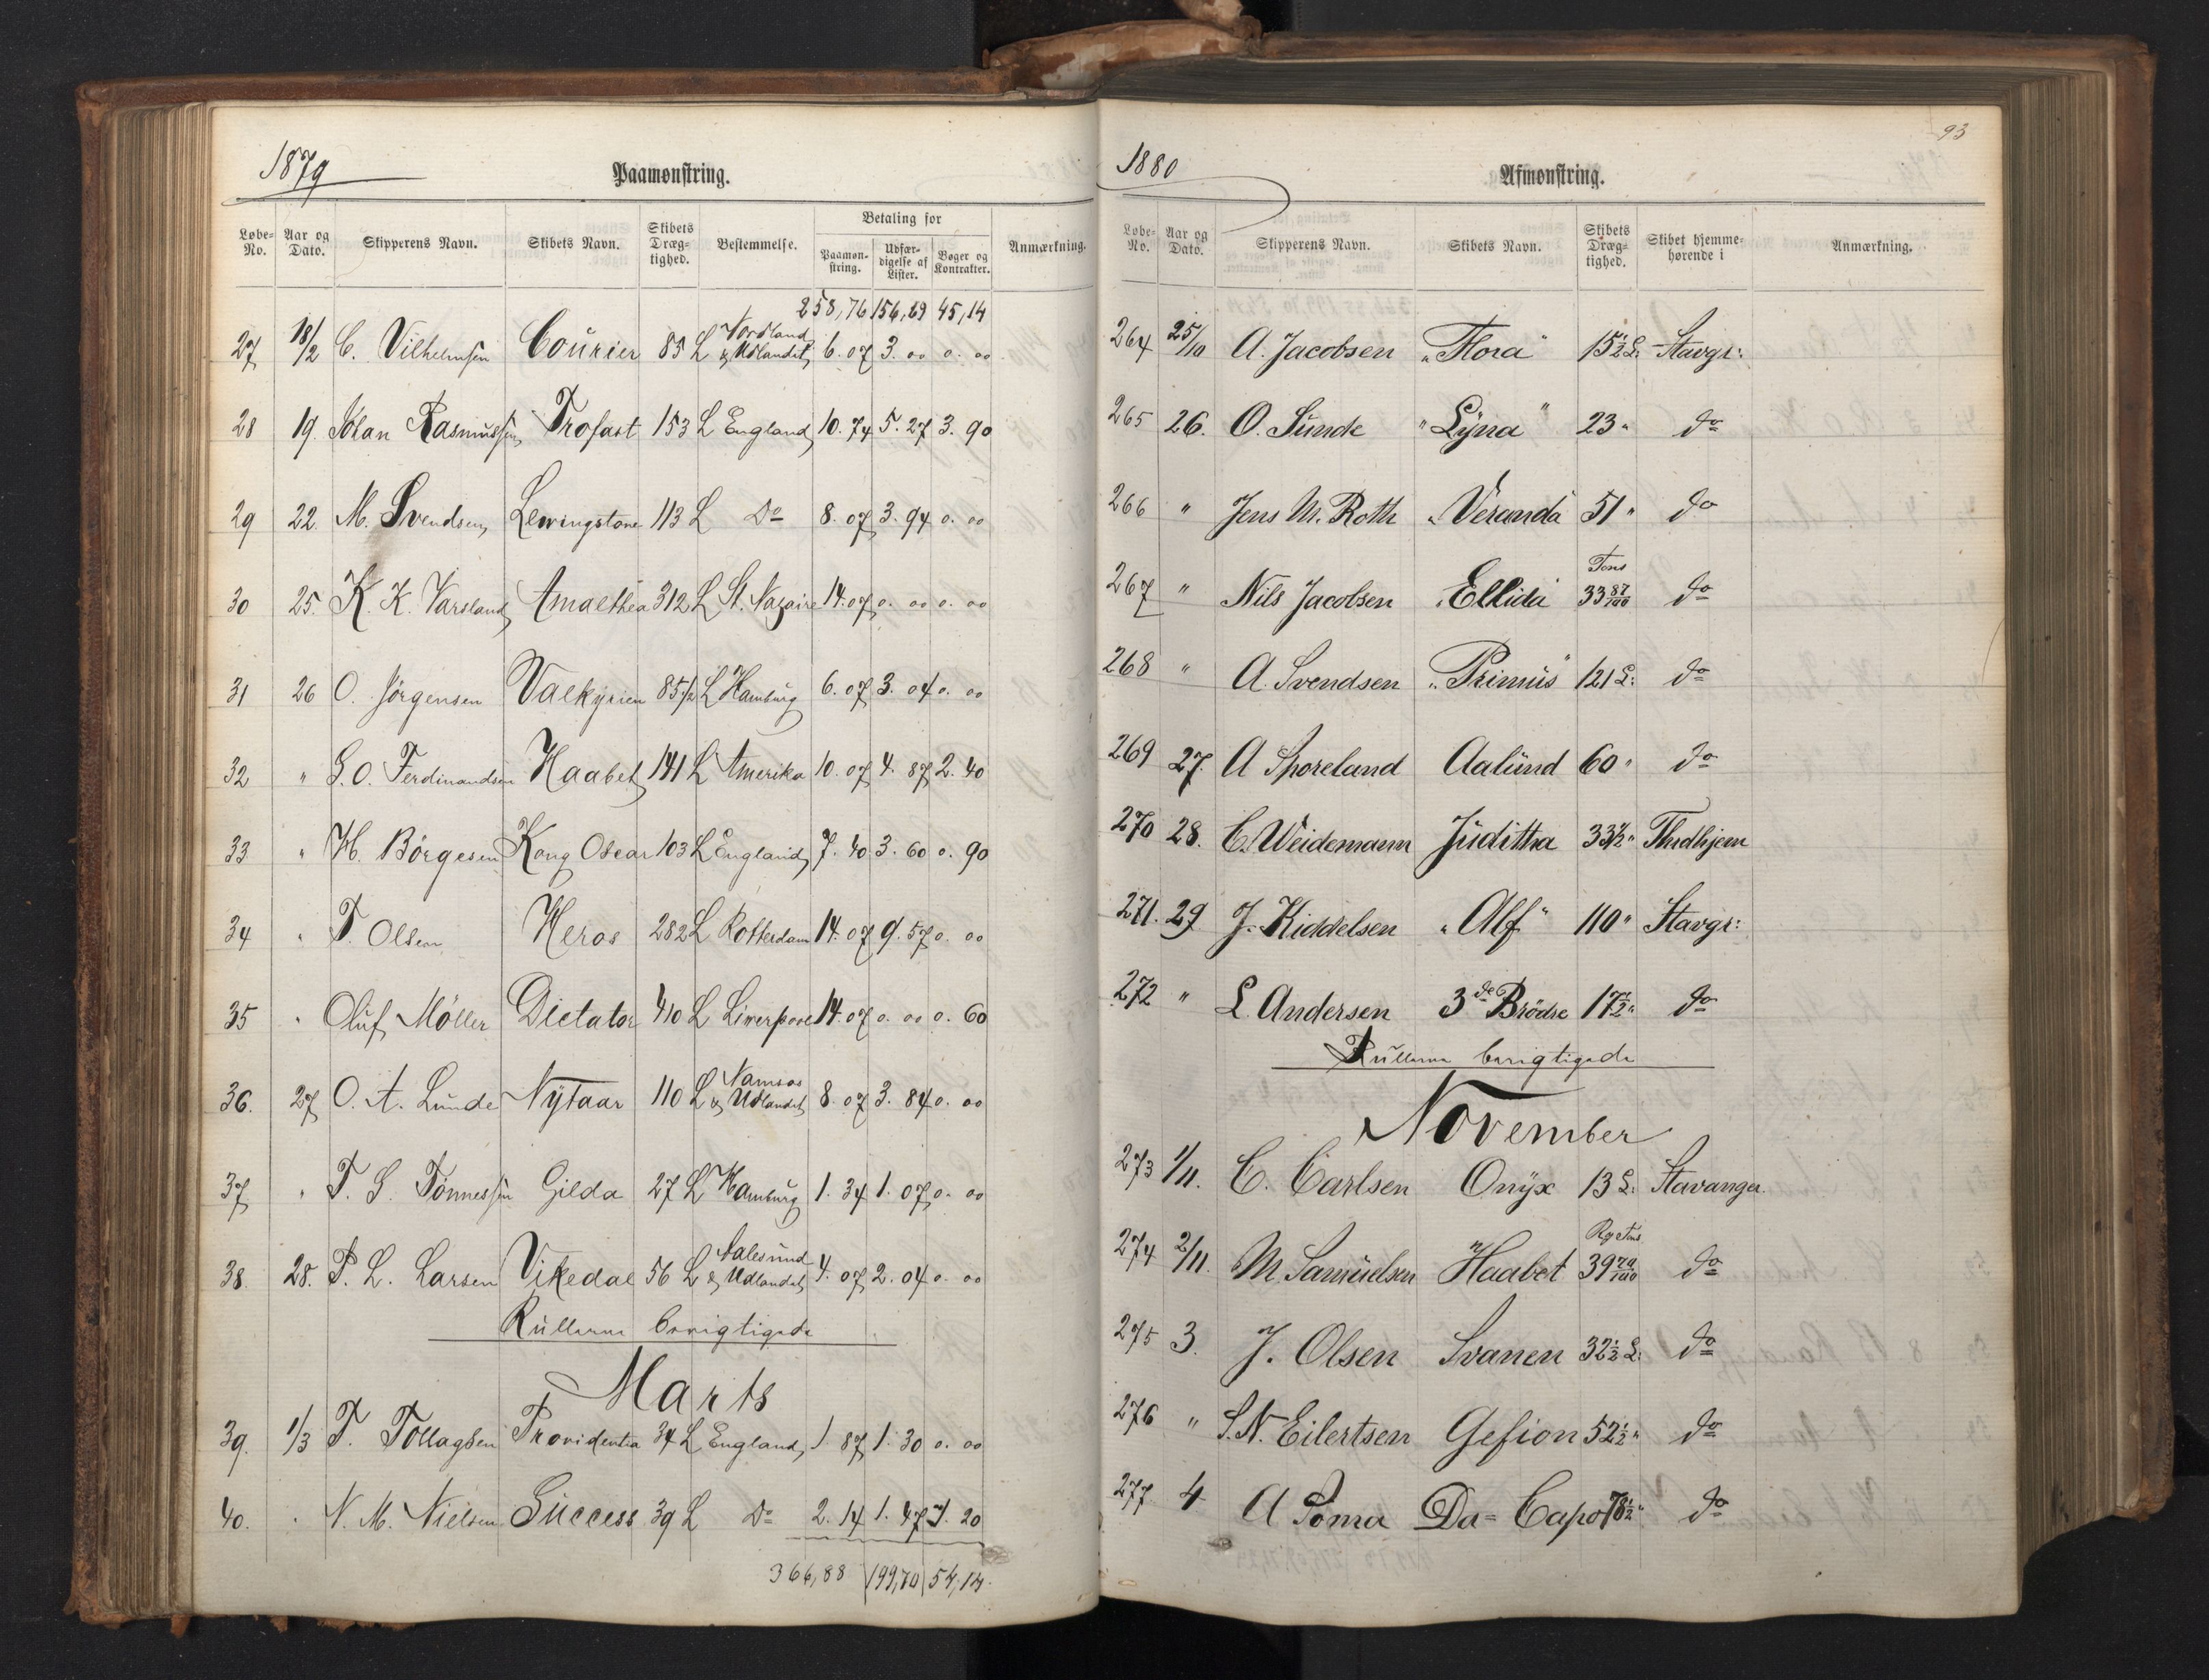 1879
Paamønstring.
Løbe-No. Aar og Dato. Skipperens Navn. Skibets Navn. Skibets Dræg-tighed. Bestemmelse. Betaling for Paamøn-string. Udfær-digelse af Lister. Bøger og Kontrakter. Anmærkning.
258,76 156,29 45,14
27 18/2 C. Vilhelmsen Courier 85 L Nordland & Udlandet 6.07 3.00 0.00
28 19. Johan Rasmussen Trofast 153 L England 10.74 5.27 3.90
29 22. M. Svendsen Lewingstone 113 L Do 8.07 3.94 0.00
30 25. K. K. Varsland Amalthea 312 L St. Nazaire 14.07 0.00 0.00
31 26 O. Jörgensen Valkyrien 85 1/2 L Hamburg 6.07 3.04 0.00
32 " G. O. Ferdinandsen Haabet 141 L Amerika 10.07 4.87 2.40
33 " H. Börgesen Kong Oscar 103 L England 7.40 3.60 0.90
34 " T. Olsen Heros 282 L Rotterdam 14.07 9.57 0.00
35 " Oluf Möller Dictator 410 L Liverpool 14.07 0.00 0.60
36. 27 O. A. Lunde Nytaar 110 L Namsos & Udlandet 8.07 3.84 0.00
37 " T. G. Tönnessen Gilda 27 L Hamburg 1.34 1.07 0.00
38. 28. P. L. Larsen Vikedal 56 L Aalesund & Udlandet 4.07 2.04 0.00
Rullerne berigtigede
Marts
39. 1/3 T. Tollagsen Providentia 34 L England 1.87 1.30 0.00
40. " N. M. Nielsen Success 39 L Do 2.14 1.47 1.20
366,88 199,70 54,14
93
1880
Afmønstring.
Løbe-No. Aar og Dato. Skipperens Navn. Skibets Navn. Skibets Dræg-tighed. Skibet hjemme-hørende i Anmærkning.
264 25/10 A. Jacobsen "Flora" 15 1/2 L: Stavgr:
265 26. O. Sunde "Lyna" 23 " do
266 " Jens M. Roth "Veranda" 51 " do
267 " Nils Jacobsen "Ellida" Tons 33 87/100 do
268 " A. Svendsen "Primus" 121 L: do
269 27. A Sporeland Aalund 60 " do
270 28. C. Weidemann Juditha 33 1/2 " Thrdhjem
271. 29 J. Kiddelsen "Alf" 110 " Stavgr:
272 " L. Andersen 3de Brödre 17 1/2 " do
Rullerne berigtigede
November
273 1/11. C. Carlsen Onyx 13 L: Stavanger.
274 2/11. M. Samuelsen Haabet Rg Tons 39 79/100 do
275 3. J. Olsen Svanen 32 1/2 L: do
276 " S. N. Eilertsen Gefion 52 1/2 " do
277 4 A Soma Da=Capo 78 1/2 " do